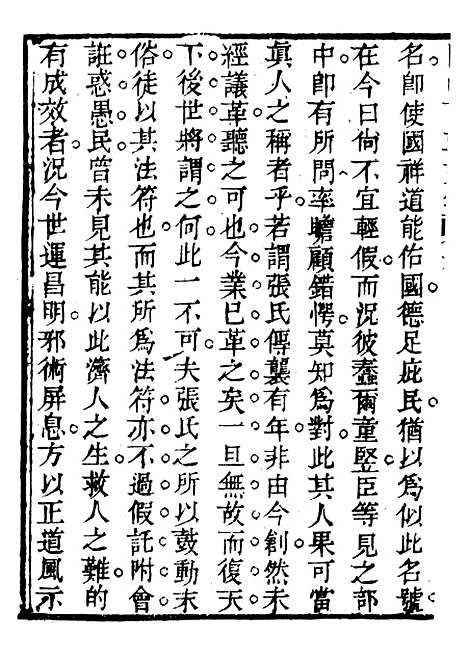 名卽使國祥道能佑國。德足庇民。猶以爲似此名號。
在今日尙不宜輕假。而況彼蠢爾童竪。臣等見之部
中。卽有所問。率瞻顧錯愕。莫知爲對。此其人果可當
眞人之稱者乎。若謂張氏傳襲有年。非由今創。然未
經議革。聽之可也。今業已革之矣。一旦無故而復。天
下後世將謂之何。此一不可。夫張氏之所以鼓動末
俗徒以其法符也。而其所爲法符。亦不過假託附會。
誑惑愚民。曾未見其能以此濟人之生。救人之難。的
有成效者。況今世運昌明。邪術屏息。方以正道風示